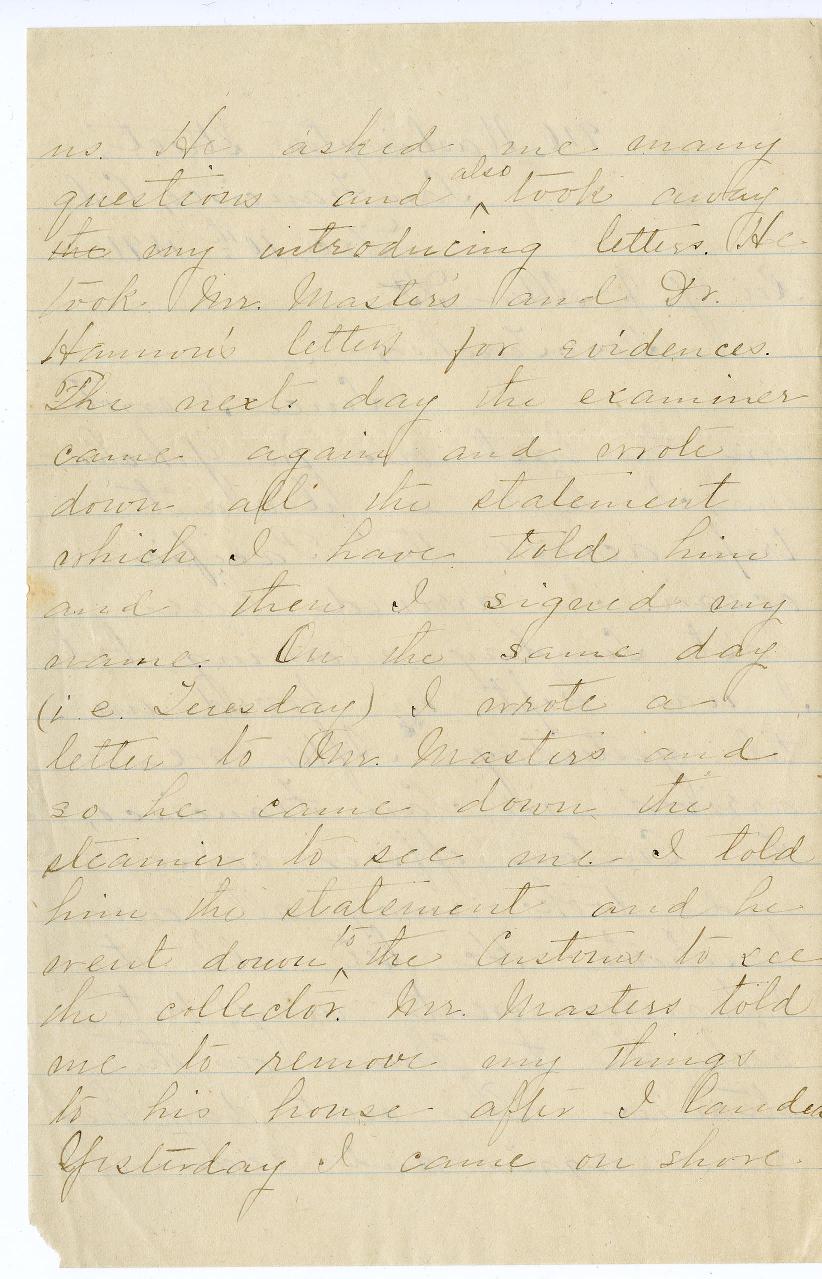 us. He asked me many
questions and also took away
the my introducing letters. He
took Mr. Master's and Dr.
Hammon's letters for evidences.
The next day the examiner
came again and wrote
down all the statement
which I have told him
and then I signed my
name. On the same day
(i.e. Tuesday) I wrote a
letter to Mr. Masters and
so he came down the
steamer to see me. I told
him the statement and he
went down to the Customs to see
the collector. Mr. Masters told
me to remove my things
to his house after I landed
Yesterday I came on shore.